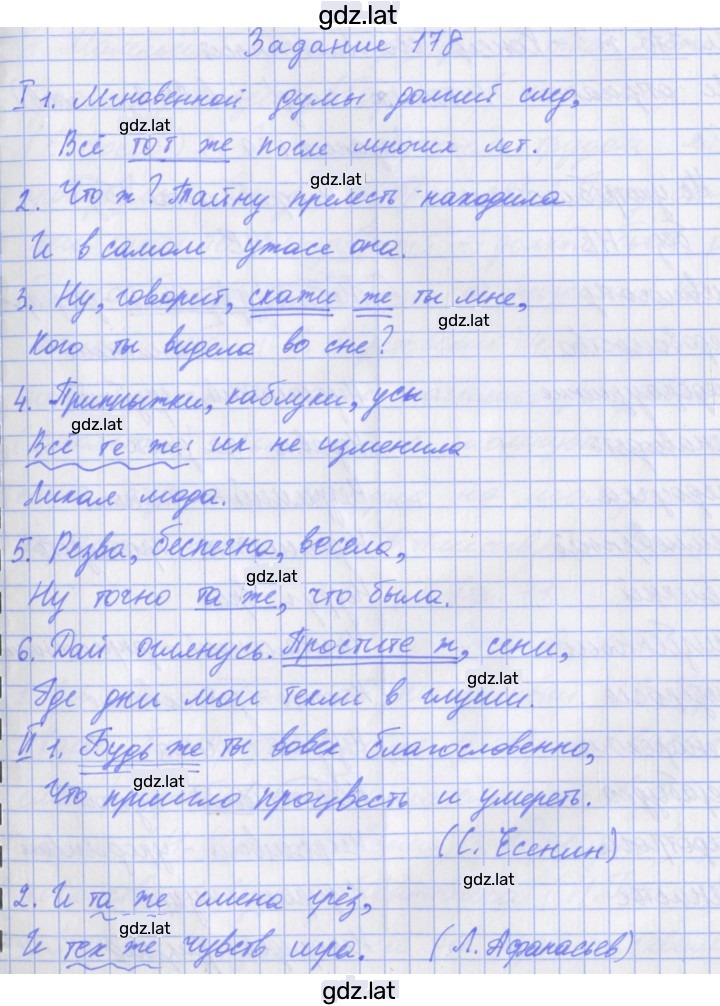 gdz.lat
Задание 178
I 1. Мгновенной думы долгий след,
gdz.lat
Всё тот же после многих лет.
gdz.lat
2. Что ж? Тайну прелесть находила
И в самом ужасе она.
3. Ну, говорит, скажи же ты мне,
gdz.lat
Кого ты видела во сне?
4. Припрыжки, каблуки, усы
gdz.lat
Всё те же: их не изменила
Лихая мода.
5. Резва, беспечна, весела,
gdz.lat
Ну точно та же, что была.
6. Дай оглянусь. Простите ж, сени,
gdz.lat
Где дни мои текли в глуши.
II 1. Будь же ты вовек благословенно,
gdz.lat
Что пришло процвесть и умереть.
(С. Есенин)
gdz.lat
2. И та же смена грёз,
gdz.lat
И тех же чувств игра. (Л. Афанасьев)
gdz.lat